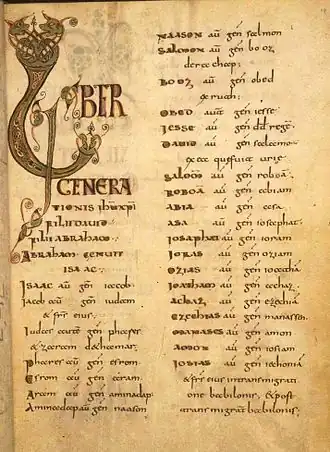 LIBER
GENERA
TIONIS IHU XPI
FILII DAVID
FILII ABRAHAM
ABRAHAM GENUIT
ISAAC
ISAAC aū gen iacob
iacob aū gen iudam
& frs eius
Iudas autē gen phares
& zaram de thamar
Phares aū gen esrom
Esrom aū gen aram
Aram aū gen aminadap
Aminadap aū gen naason
NAASON aū gen salmon
SALOMON aū gen booz
de rachab:
BOOZ aū gen obed
ex ruth;
OBED autē gen iesse
IESSE aū gen dd rege
DAVID aū gen salamo
ex ea que fuit urie
SALOM aū gen roboā
ROBOA aū gen abiam
ABIA aū gen asa
ASA aū gen iosephat
IOSAPHAT aū gen ioram
IORAS aū gen oziam
OZIAS aū gen ioathā
IOATHAM aū gen achaz
ACHAZ aū gen ezechiā
EZCHIAS aū gen manassen
MANASSES aū gen amon
AMON aū gen iosiam
IOSIAS aū gen iechoniā
& frs eius in transmigrati
one babilonis, & post
transmigrat babilonis,